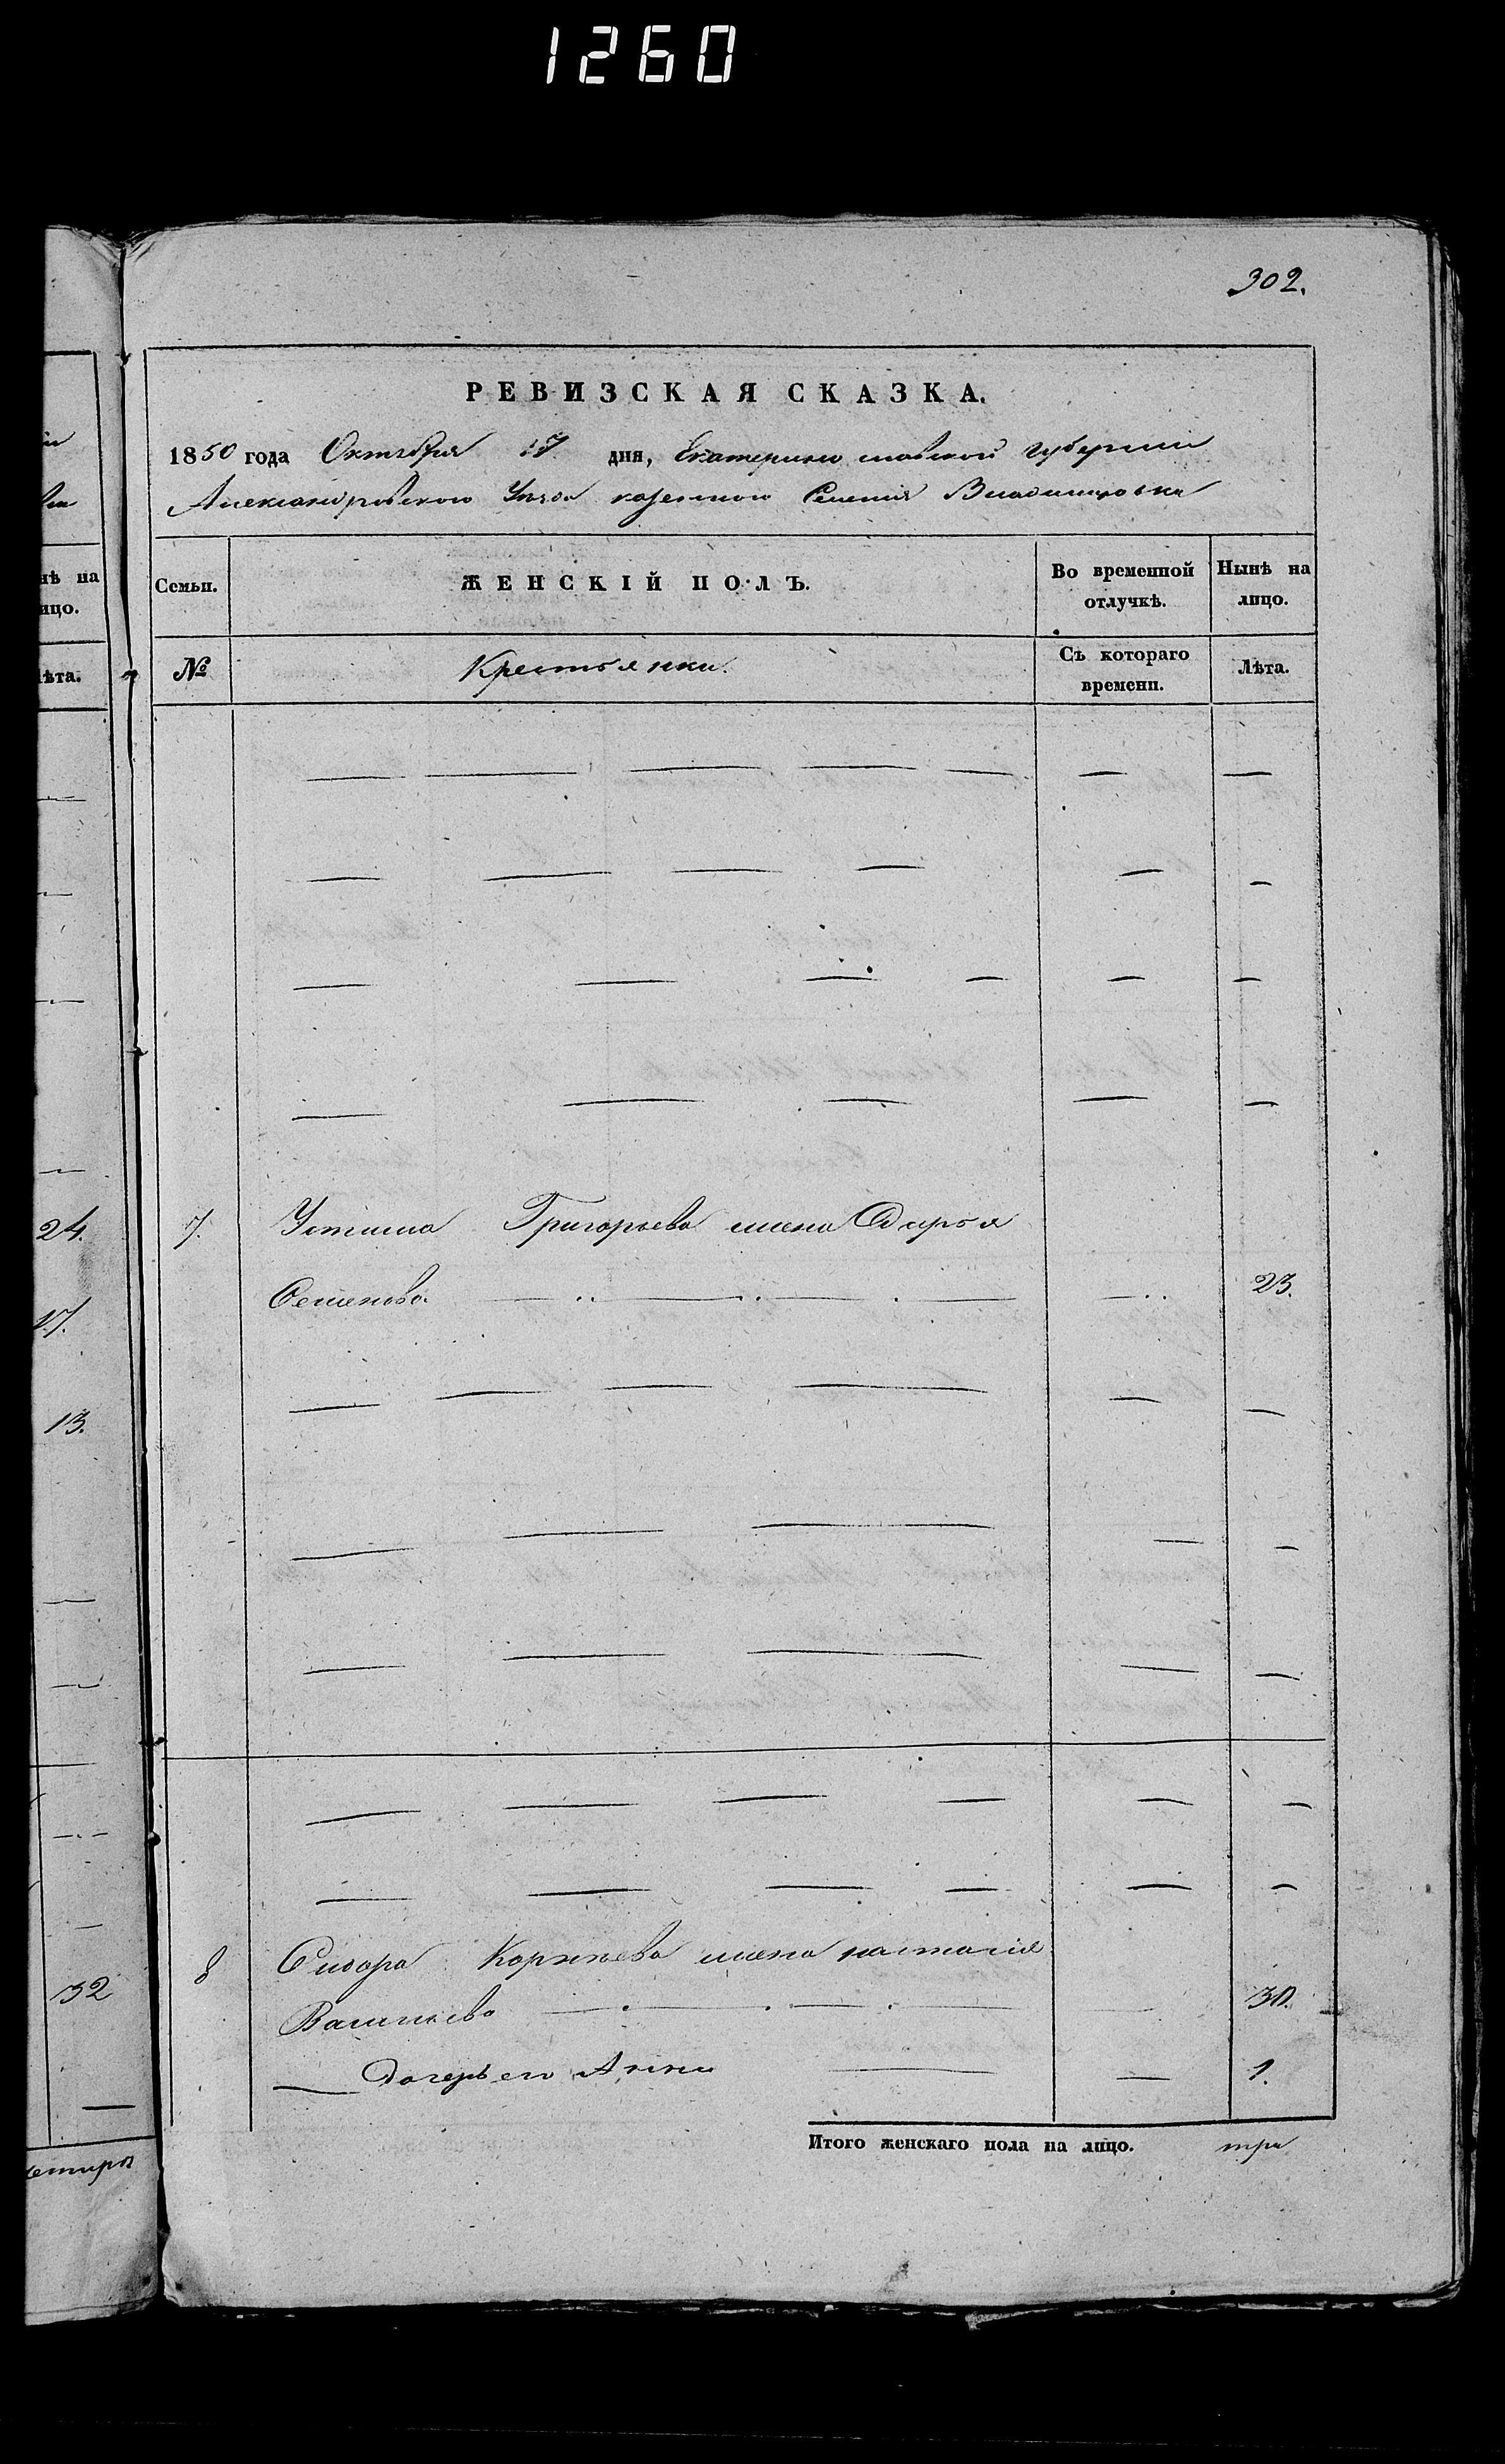 1260
302.
РЕВИЗСКАЯ СКАЗКА.
1850 года Октября 17 дня, Екатеринославской губернии
Александровского Уезда казенного Селения Владимировка
Семьи. ЖЕНСКІЙ ПОЛЪ. Во временной отлучкѣ. Нынѣ на лицо.
№ Крестьянки. Съ котораго времени. Лѣта.
24.
7. Устина Григорьева жена Дарья
Семенова. 23.
17.
13.
8 Сидора Корнѣева жена настасія
32
Васильева 30.
Дочерь его Анна 1.
Итого женскаго пола на лицо. три